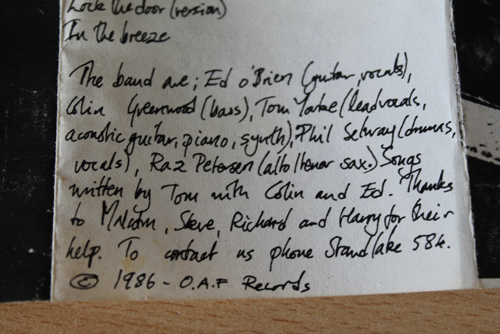 Lock the door (version)
In the breeze
The band are; Ed O'Brien (guitar, vocals),
Colin Greenwood (bass), Tom Yorke (lead vocals,
acoustic guitar, piano, synth), Phil Selway (drums,
vocals), Raz Petersen (alto/tenor sax.) Songs
written by Tom with Colin and Ed. Thanks
to Malcolm, Steve, Richard and Harry for their
help. To contact us phone Standlake 584.
© 1986 - O.A.F Records